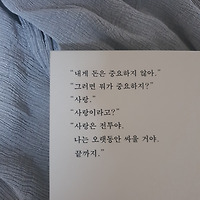 "내게 돈은 중요하지 않아."
"그러면 뭐가 중요하지?"
"사랑."
"사랑이라고?"
"사랑은 전투야.
나는 오랫동안 싸울 거야.
끝까지."